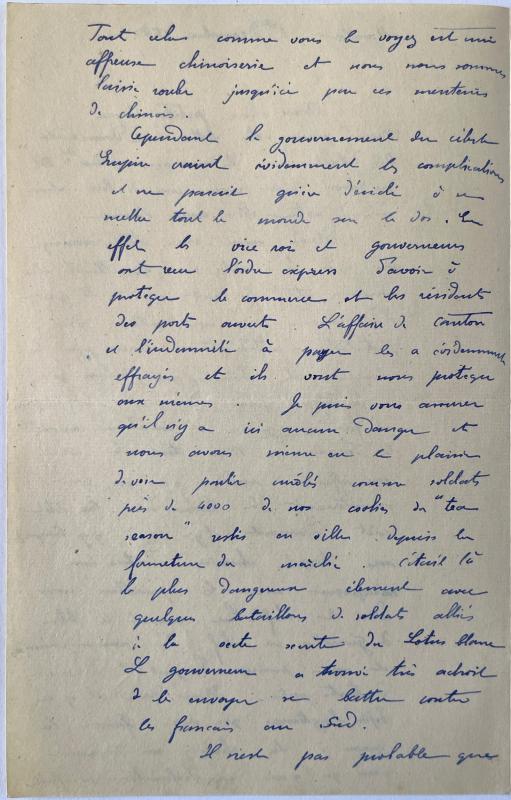 Tout cela comme vous le voyez est une
affreuse chinoiserie et nous nous sommes
laissé rouler jusqu'ici par ces menteurs
de chinois.
Cependant le gouvernement du céleste
Empire craint évidemment les complications
et ne parait guère décidé à se
mettre tout le monde sur le dos. En
effet les vice rois et gouverneurs
ont reçu l'ordre express d'avoir à
proteger le commerce et les résidents
des ports ouverts L'affaire de Canton
et l'indemnité à payer les a évidemment
effrayés et ils vont nous proteger
eux mêmes. Je puis vous assurer
qu'il n'y a ici aucun danger et
nous avons même eu le plaisir
de voir partir enrôlés comme soldats
près de 4000 de nos coolies du "tea
season" restés en ville depuis la
fermeture du marché. C'était là
le plus dangereux élement avec
quelques bataillons de soldats alliés
à la secte secrète du Lotus blanc
Le gouverneur a trouvé très adroit
de les envoyer se battre contre
les français au Sud.
Il n'est pas probable que